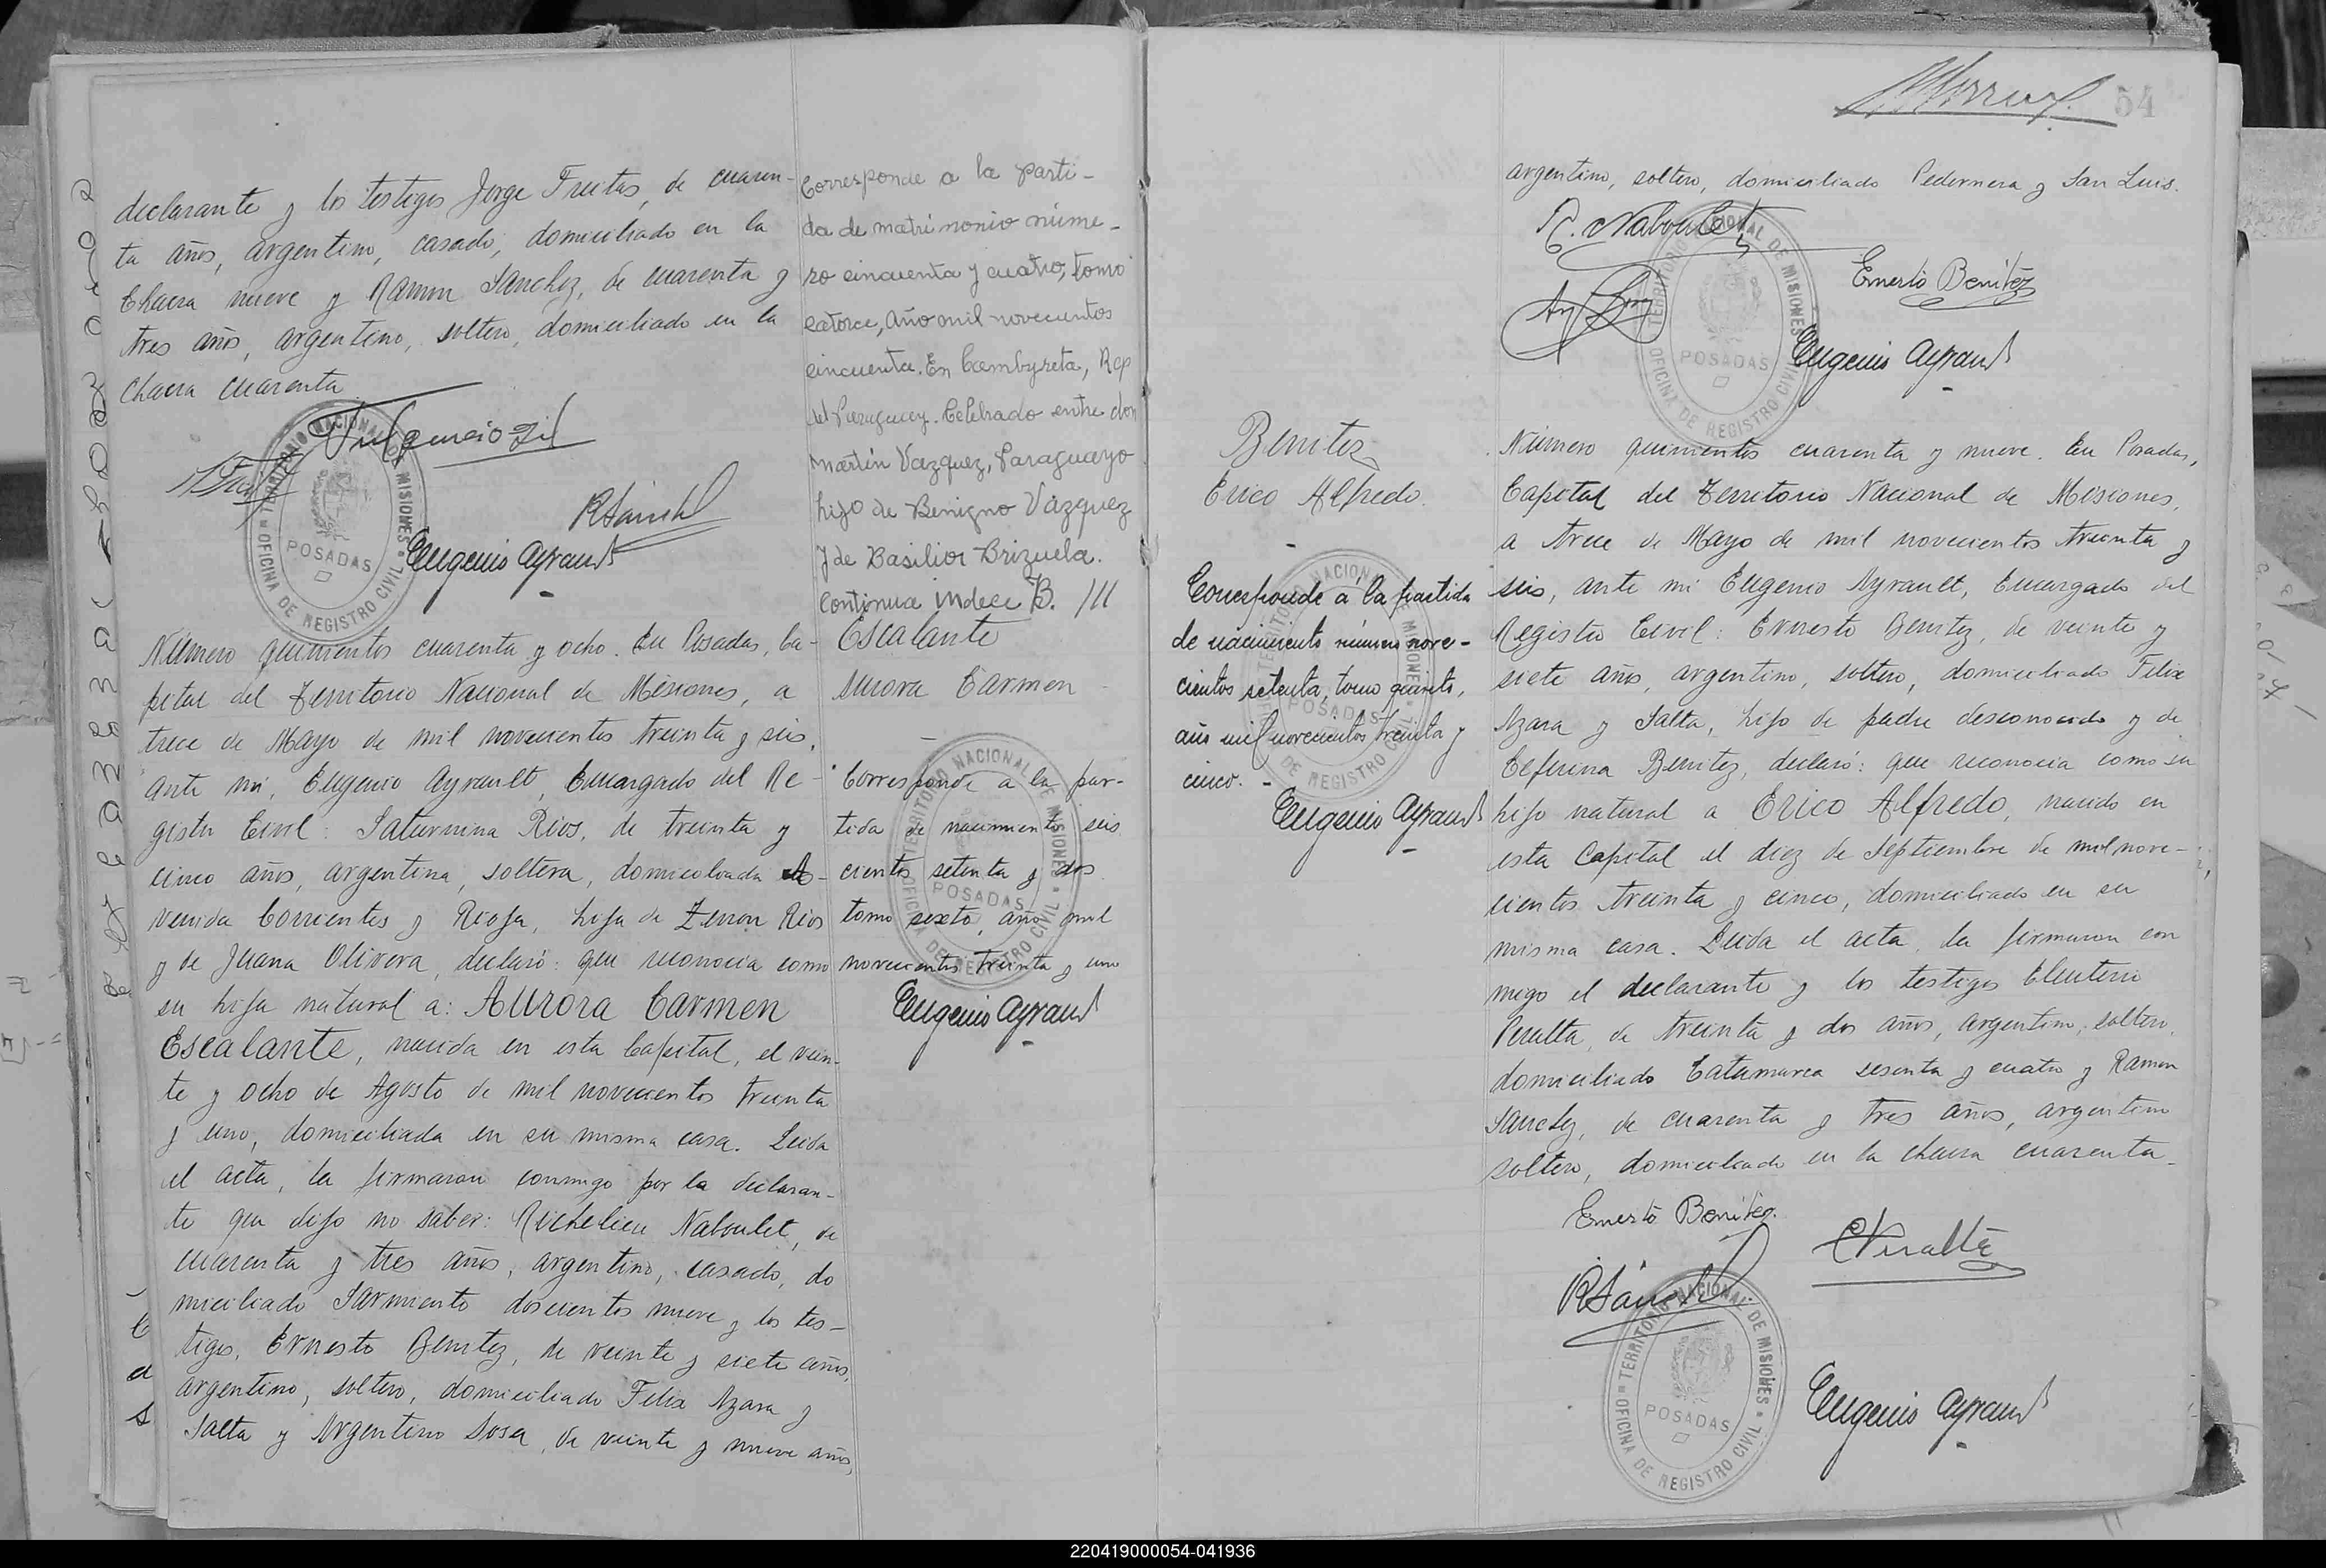 declarante y los testigos Jorge Freitas, de cuaren-
ta años, argentino, casado, domiciliado en la
Chacra nueve y Ramon Sanchez, de cuarenta y
tres años, argentino, soltero, domiciliado en la
chacra cuarenta
Fulgencio Gil
RSánchez
Eugenio Ayrault
TERRITORIO NACIONAL DE MISIONES
POSADAS
OFICINA DE REGISTRO CIVIL
Número quinientos cuarenta y ocho. En Posadas, Ca-
pital del Territorio Nacional de Misiones, a
trece de Mayo de mil novecientos treinta y seis,
ante mi, Eugenio Ayrault, Encargado del Re-
gistro Civil: Saturnina Rios, de treinta y
cinco años, argentina, soltera, domiciliada A-
venida Corrientes y Rioja, hija de Zenon Rios
y de Juana Olivera, declaró: que reconocia como
su hija natural a: Aurora Carmen
Escalante, nacida en esta Capital, el vein-
te y ocho de Agosto de mil novecientos treinta
y uno, domiciliada en su misma casa. Leida
el acta, la firmaron conmigo por la declaran-
te que dijo no saber: Richelieu Naboulet, de
cuarenta y tres años, argentino, casado, do
miciliado Sarmiento doscientos nueve y los tes-
tigos, Ernesto Benitez, de veinte y siete años,
argentino, soltero, domiciliado Felix Azara y
Salta y Argentino Sosa, de veinte y nueve años,
Corresponde a la parti-
da de matrimonio núme-
ro cincuenta y cuatro, tomo
catorce, Año mil novecientos
cincuenta. En Cambyreta, Rep
del Paraguay. Celebrado entre don
Martin Vazquez, Paraguayo
hijo de Benigno Vazquez
y de Basilior Brizuela.
Continua indece B. ///
Escalante
Aurora Carmen
Corresponde a la par-
tida de nacimiento seis
cientos setenta y dos
tomo sexto, año mil
novecientos treinta y uno
Eugenio Ayrault
TERRITORIO NACIONAL DE MISIONES
POSADAS
OFICINA DE REGISTRO CIVIL
54
argentino, soltero, domiciliado Pedernera y San Luis.
R. Naboulet
Ernesto Benítez
Eugenio Ayrault
TERRITORIO NACIONAL DE MISIONES
POSADAS
OFICINA DE REGISTRO CIVIL
Benitez
Erico Alfredo.
Corresponde á la partida
de nacimiento número nove-
cientos setenta, tomo quinto,
año mil novecientos treinta y
cinco.-
Eugenio Ayrault
POSADAS
Número quinientos cuarenta y nueve. En Posadas,
Capital del Territorio Nacional de Misiones,
a trece de Mayo de mil novecientos treinta y
seis, ante mi Eugenio Ayrault, Encargado del
Registro Civil: Ernesto Benitez, de veinte y
siete años, argentino, soltero, domiciliado Felix
Azara y Salta, hijo de padre desconocido y de
Ceferina Benitez, declaró: que reconocia como su
hijo natural a Erico Alfredo, nacido en
esta Capital el diez de Septiembre de mil nove-
cientos treinta y cinco, domiciliado en su
misma casa. Leida el acta, la firmaron con
migo el declarante y los testigos Eleuterio
Peralta, de treinta y dos años, argentino, soltero,
domiciliado Catamarca sesenta y cuatro y Ramon
Sanchez, de cuarenta y tres años, argentino
soltero, domiciliado en la chacra cuarenta-
Ernesto Benítez.
EPeralta
RSánchez
Eugenio Ayrault
TERRITORIO NACIONAL DE MISIONES
POSADAS
OFICINA DE REGISTRO CIVIL
220419000054-041936